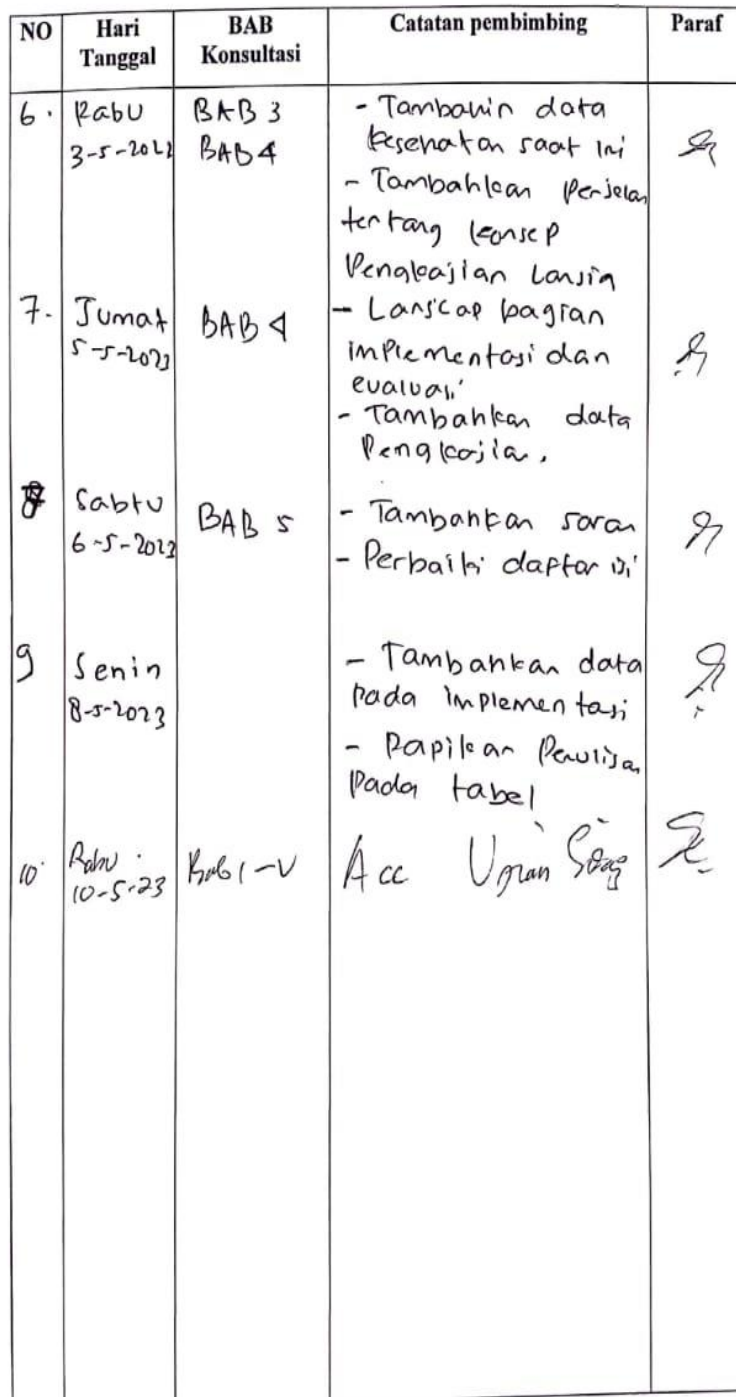 NO Hari Tanggal BAB Konsultasi Catatan pembimbing Paraf
6. Rabu BAB 3 - Tambahin data
3-5-2023 BAB 4 kesehatan saat ini
- Tambahkan Penjelasan
tentang konsep
Pengkajian Lansia
7. Jumat BAB 4 - Lanscap bagian
5-5-2023 implementasi dan
evaluasi
- Tambahkan data
Pengkajian.
8 Sabtu BAB 5 - Tambahkan saran
6-5-2023 - Perbaiki daftar isi
9 Senin - Tambahkan data
8-5-2023 Pada implementasi
- Rapikan Penulisan
Pada tabel
10. Rabu. Bab 1-V Acc Ujian
10-5-23